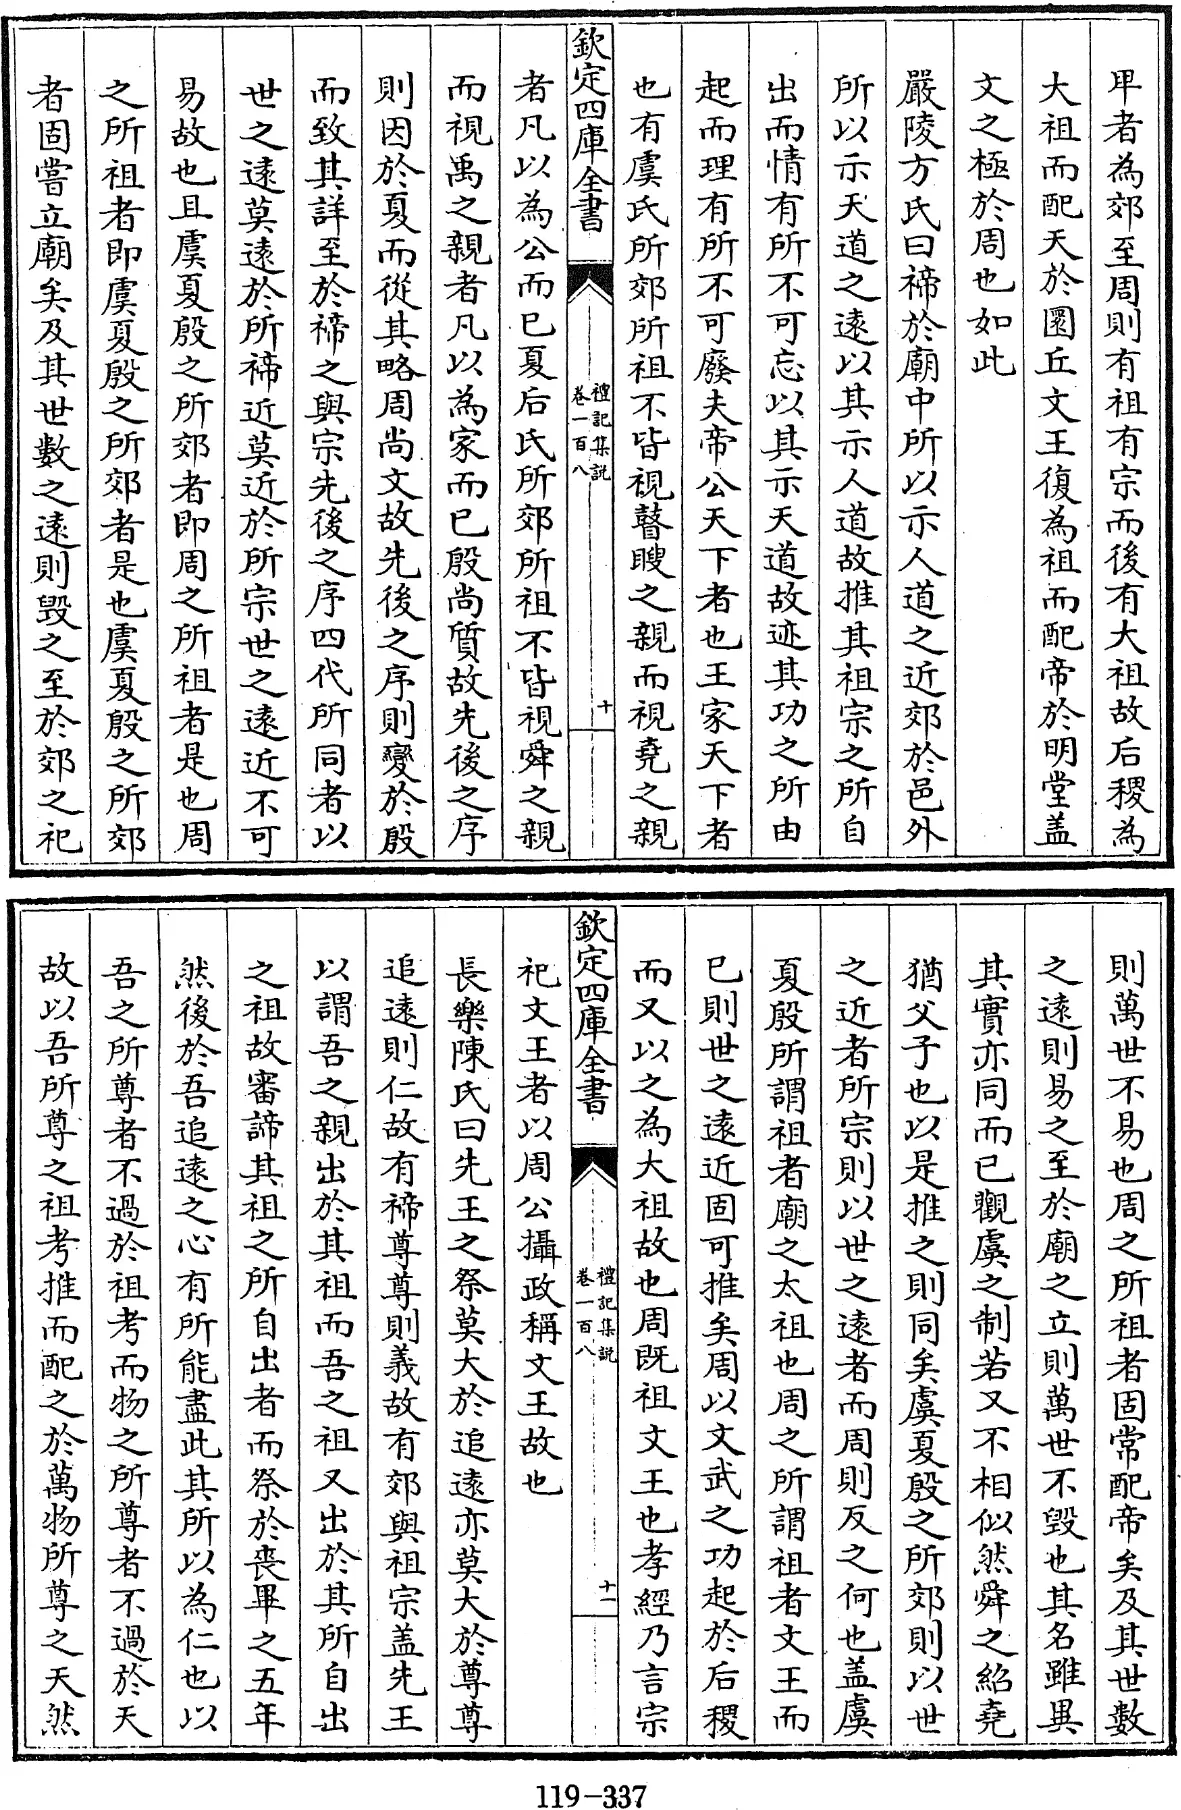 卑者為郊至周則有祖有宗而後有大祖故后稷為
大祖而配天於圜丘文王復為祖而配帝於明堂盖
文之極於周也如此
嚴陵方氏曰禘於廟中所以示人道之近郊於邑外
所以示天道之逺以其示人道故推其祖宗之所自
出而情有所不可忘以其示天道故迹其功之所由
起而理有所不可廢夫帝公天下者也王家天下者
也有虞氏所郊所祖不皆視瞽瞍之親而視堯之親
欽定四庫全書
禮記集說
卷一百八
十
者凡以為公而已夏后氏所郊所祖不皆視舜之親
而視禹之親者凡以為家而已殷尚質故先後之序
則因於夏而從其略周尚文故先後之序則變於殷
而致其詳至於禘之與宗先後之序四代所同者以
世之逺莫逺於所禘近莫近於所宗世之逺近不可
易故也且虞夏殷之所郊者即周之所祖者是也周
之所祖者即虞夏殷之所郊者是也虞夏殷之所郊
者固嘗立廟矣及其世數之逺則毀之至於郊之祀
則萬世不易也周之所祖者固常配帝矣及其世數
之逺則易之至於廟之立則萬世不毀也其名雖異
其實亦同而已觀虞之制若又不相似然舜之紹堯
猶父子也以是推之則同矣虞夏殷之所郊則以世
之近者所宗則以世之逺者而周則反之何也盖虞
夏殷所謂祖者廟之太祖也周之所謂祖者文王而
已則世之逺近固可推矣周以文武之功起於后稷
而又以之為大祖故也周既祖文王也孝經乃言宗
欽定四庫全書
禮記集說
卷一百八
十一
祀文王者以周公攝政稱文王故也
長樂陳氏曰先王之祭莫大於追逺亦莫大於尊尊
追逺則仁故有禘尊尊則義故有郊與祖宗盖先王
以謂吾之親出於其祖而吾之祖又出於其所自出
之祖故審諦其祖之所自出者而祭於喪畢之五年
然後於吾追逺之心有所能盡此其所以為仁也以
吾之所尊者不過於祖考而物之所尊者不過於天
故以吾所尊之祖考推而配之於萬物所尊之天然
119-337